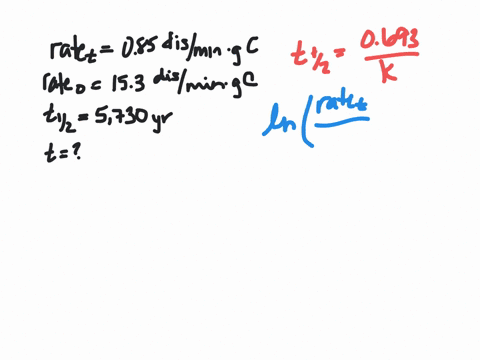 rate_t = 0.85 dis/min·g C
rate_0 = 15.3 dis/min·g C
t_1/2 = 5,730 yr
t = ?
t_1/2 = 0.693/k
ln(rate_t